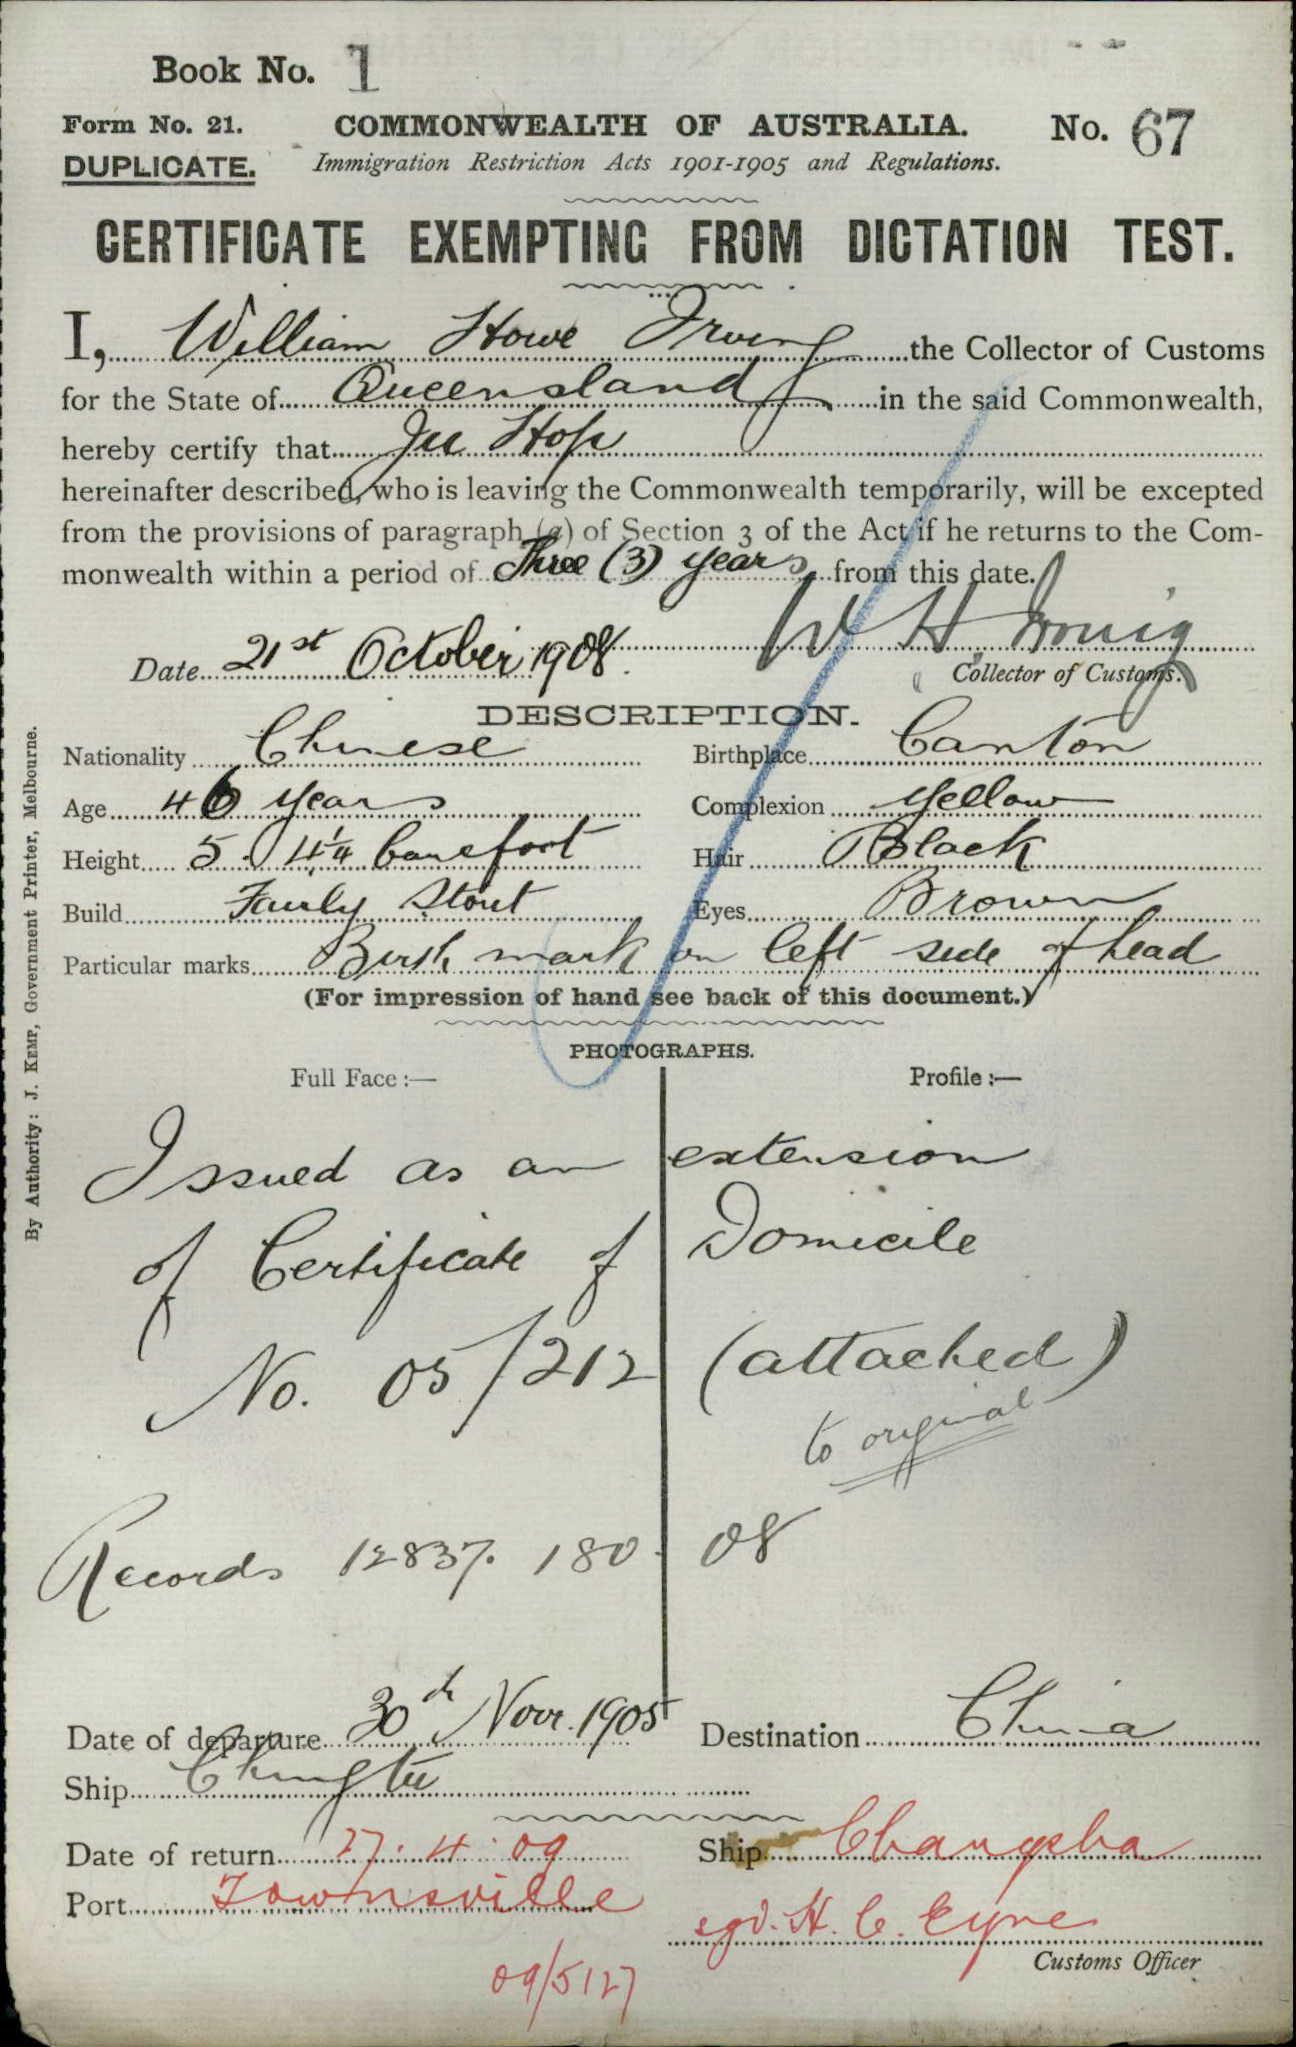 Book No. 1
Form No. 21. COMMONWEALTH OF AUSTRALIA. No. 67
DUPLICATE. Immigration Restriction Acts 1901-1905 and Regulations.
CERTIFICATE EXEMPTING FROM DICTATION TEST.
I, William Howe Irving the Collector of Customs
for the State of Queensland in the said Commonwealth,
hereby certify that Ju Hop
hereinafter described, who is leaving the Commonwealth temporarily, will be excepted
from the provisions of paragraph (a) of Section 3 of the Act if he returns to the Com-
monwealth within a period of Three (3) years from this date.
W H Irving
Date 21st October 1908.
Collector of Customs.
DESCRIPTION.
Nationality Chinese Birthplace Canton
Age 46 years Complexion Yellow
Height 5. 4 1/4 barefoot Hair Black
Build Fairly Stout Eyes Brown
Particular marks Birth mark on left side of head
(For impression of hand see back of this document.)
PHOTOGRAPHS.
Full Face:— Profile:—
Issued as an extension
of Certificate of Domicile
No. 05/212 (attached)
to original
Records 12837. 180. 08
Date of departure 30th Novr. 1905 Destination China
Ship Chingtu
Date of return 27. 4. 09 Ship Changsha
Port Townsville sgd. H. C. Eyre
Customs Officer
09/5127
By Authority: J. KEMP, Government Printer, Melbourne.